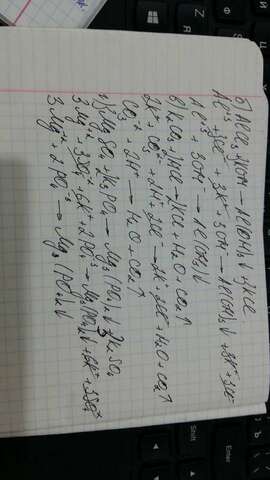 б) AlCl₃ + 3KOH → Al(OH)₃↓ + 3KCl
Al⁺³ + 3Cl⁻ + 3K⁺ + 3OH⁻ → Al(OH)₃↓ + 3K⁺ + 3Cl⁻
Al⁺³ + 3OH⁻ → Al(OH)₃↓
в) K₂CO₃ + 2HCl → 2KCl + H₂O + CO₂↑
2K⁺ + CO₃⁻² + 2H⁺ + 2Cl⁻ → 2K⁺ + 2Cl⁻ + H₂O + CO₂↑
CO₃⁻² + 2H⁺ → H₂O + CO₂↑
3MgSO₄ + 2K₃PO₄ → Mg₃(PO₄)₂↓ + 3K₂SO₄
3Mg⁺² + 3SO₄⁻² + 6K⁺ + 2PO₄⁻³ → Mg₃(PO₄)₂↓ + 6K⁺ + 3SO₄⁻²
3Mg⁺² + 2PO₄⁻³ → Mg₃(PO₄)₂↓